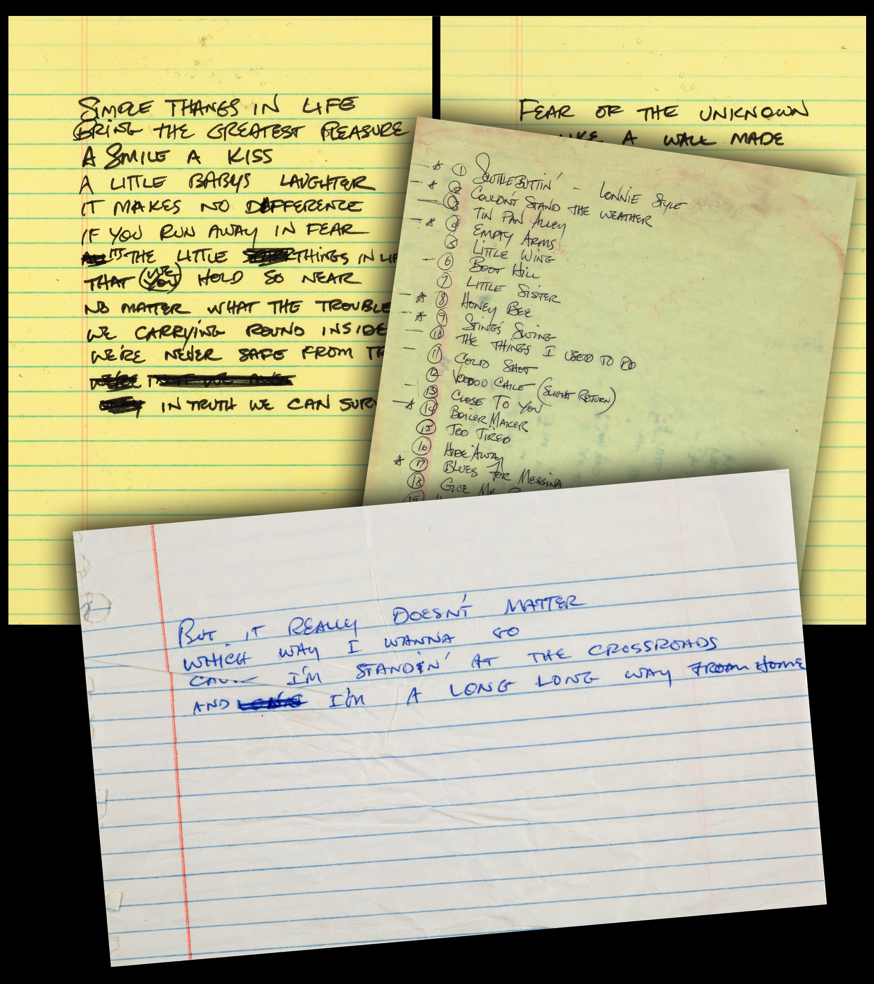 SIMPLE THANGS IN LIFE
BRING THE GREATEST PLEASURE
A SMILE A KISS
A LITTLE BABYS LAUGHTER
IT MAKES NO DIFFERENCE
IF YOU RUN AWAY IN FEAR
IT'S THE LITTLE THINGS IN
THAT (WE YOU) HOLD SO NEAR
NO MATTER WHAT THE TROUBLE
WE CARRYING ROUND INSIDE
WE'RE NEVER SAFE FROM
IN TRUTH WE CAN
FEAR OF THE UNKNOWN
A WALL MADE
1 SCUTTLEBUTTIN' - LONNIE STYLE
2 COULDN'T STAND THE WEATHER
3 TIN PAN ALLEY
4 EMPTY ARMS
5 LITTLE WING
6 BOOT HILL
7 LITTLE SISTER
8 HONEY BEE
9 STING'S SWING
10 THE THINGS I USED TO DO
11 COLD SHOT
12 VOODOO CHILE (SLIGHT RETURN)
13 CLOSE TO YOU
14 BOILER MAKER
15 TOO TIRED
16 HIDE AWAY
17 BLUES FOR MESSINA
18 GIVE ME
BUT IT REALLY DOESN'T MATTER
WHICH WAY I WANNA GO
I'M STANDIN' AT THE CROSSROADS
AND I'M A LONG LONG WAY FROM HOME